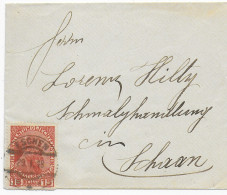 Herrn
Lorenz Hilty
Schmalzhandlung
in
Schaan
15 15